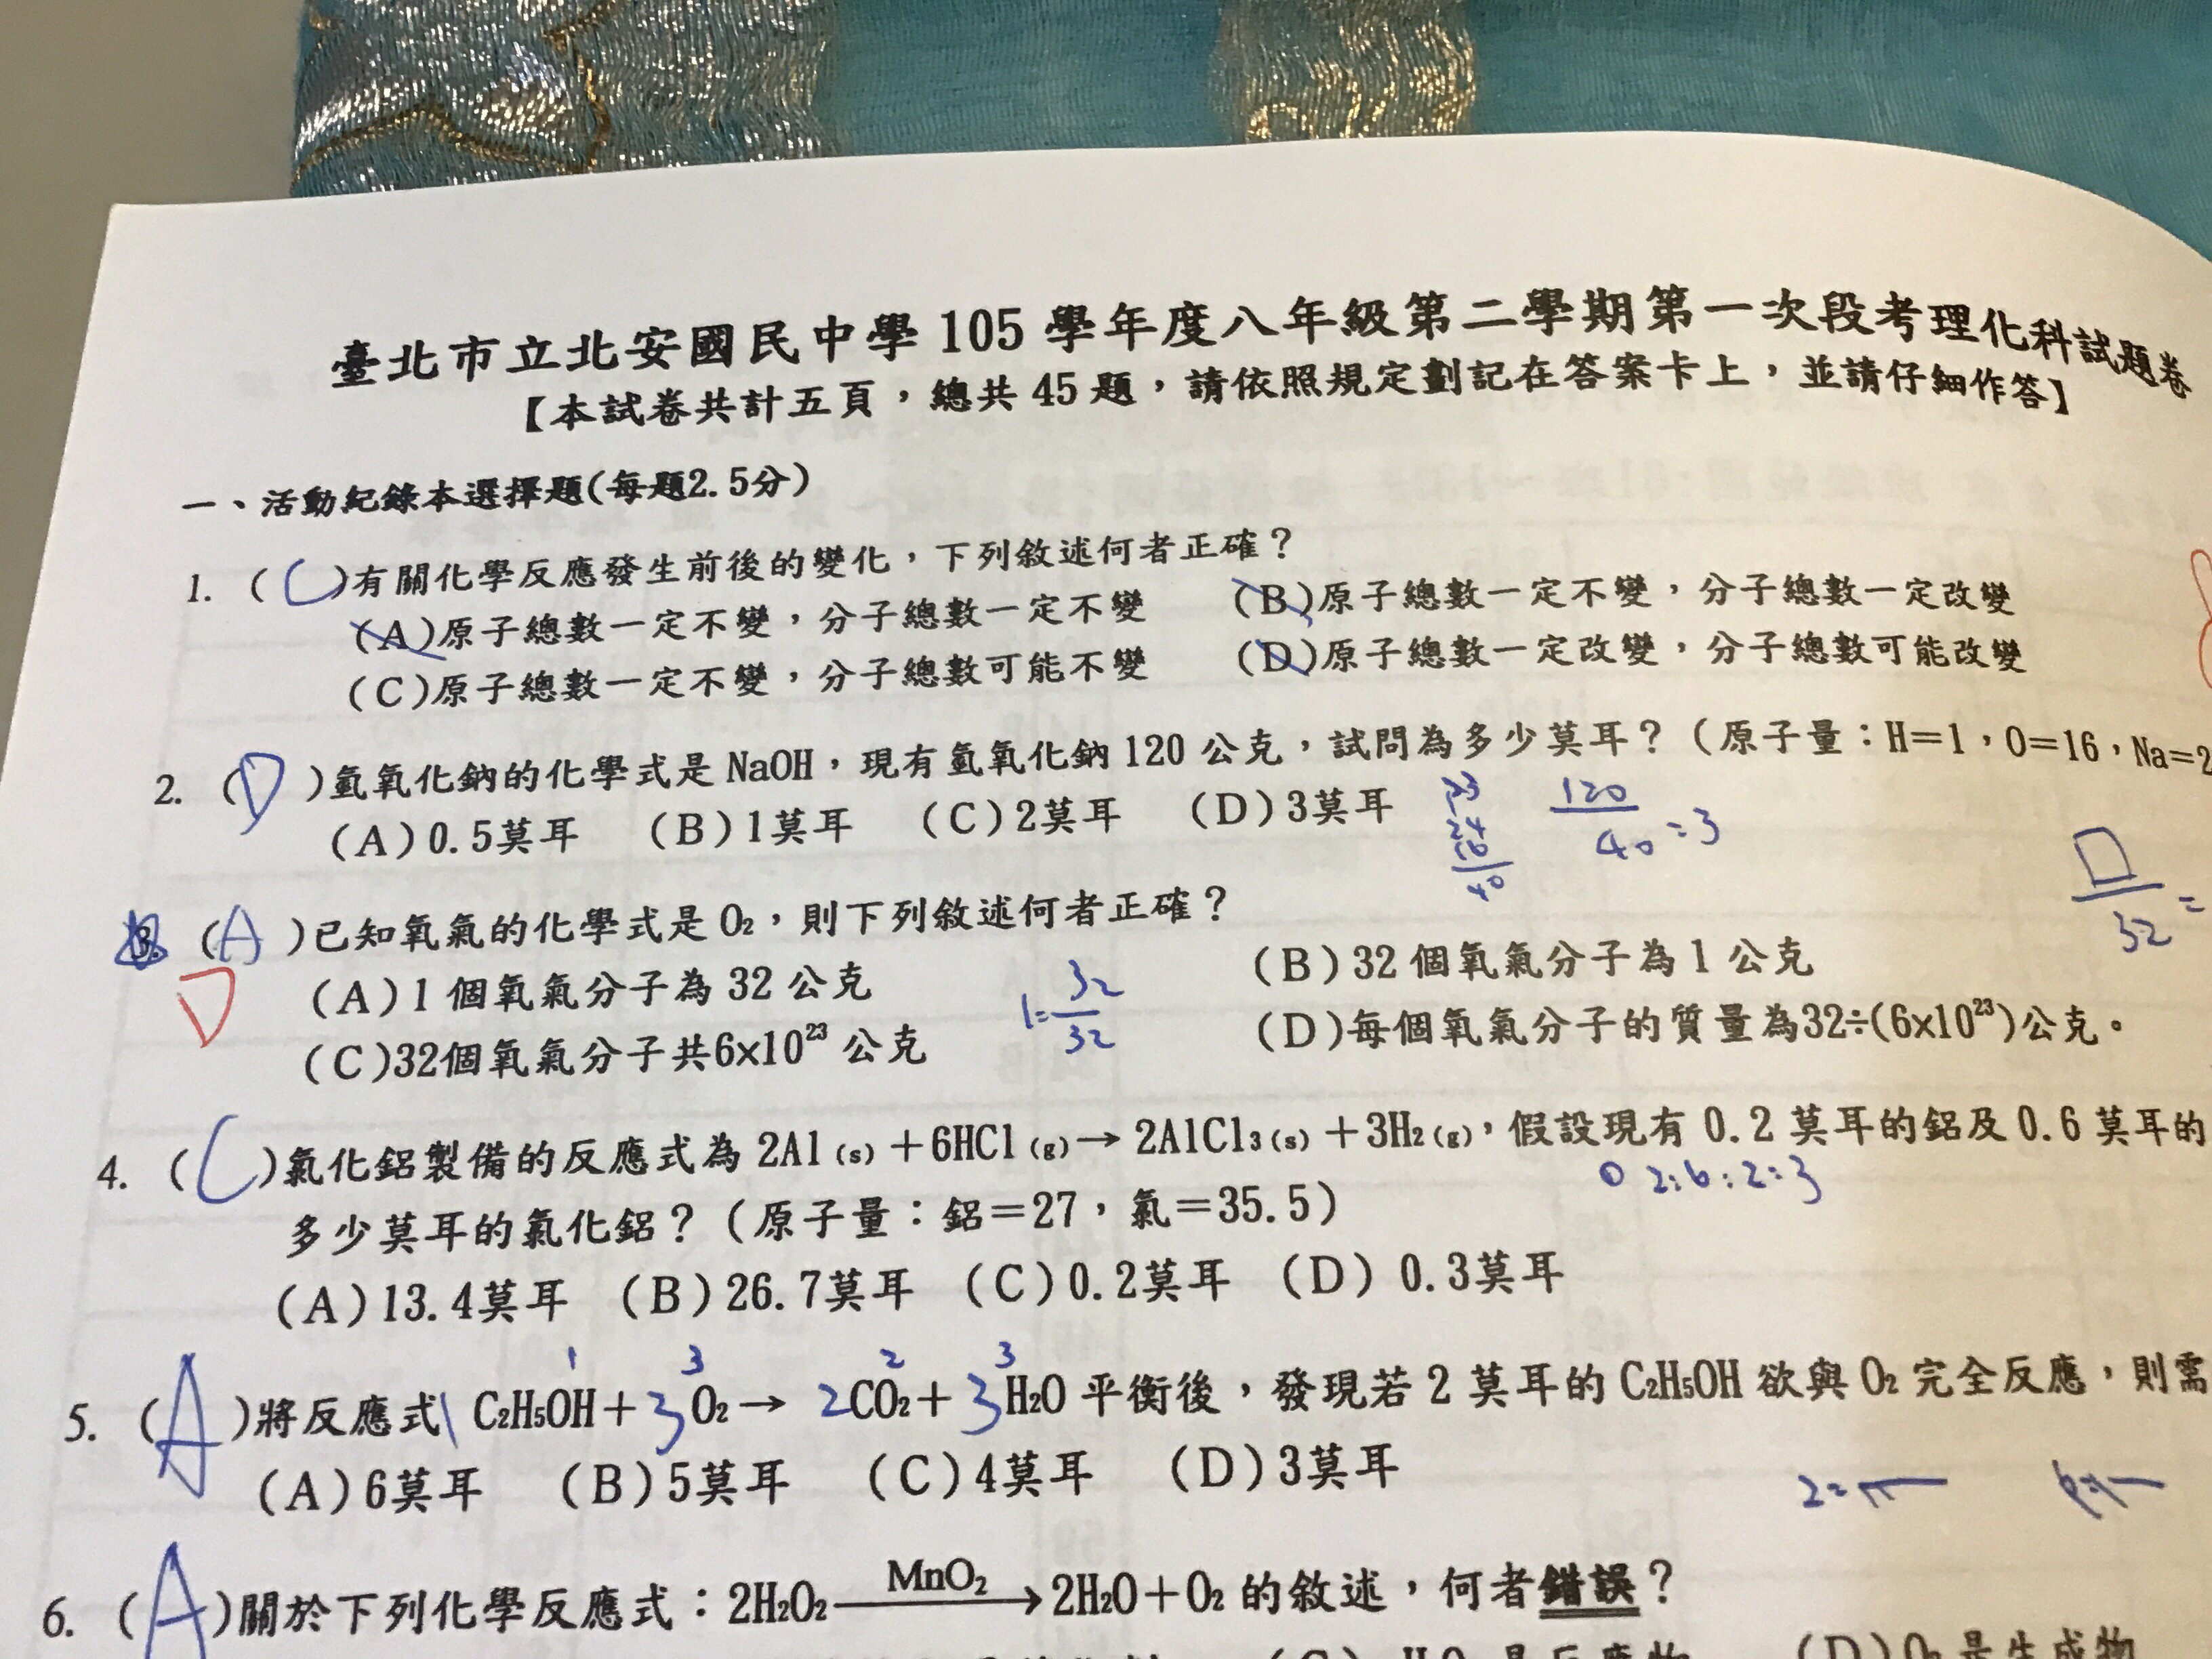 臺北市立北安國民中學 105 學年度八年級第二學期第一次段考理化科試題卷
【本試卷共計五頁，總共 45 題，請依照規定劃記在答案卡上，並請仔細作答】
一、活動紀錄本選擇題(每題2.5分)
1. ( C )有關化學反應發生前後的變化，下列敘述何者正確？
(A)原子總數一定不變，分子總數一定不變 (B)原子總數一定不變，分子總數一定改變
(C)原子總數一定不變，分子總數可能不變 (D)原子總數一定改變，分子總數可能改變
2. ( D )氫氧化鈉的化學式是 NaOH，現有氫氧化鈉 120 公克，試問為多少莫耳？(原子量：H＝1，O＝16，Na＝2
(A)0.5莫耳 (B)1莫耳 (C)2莫耳 (D)3莫耳
23
40
120
40 =3
3. ( A )已知氧氣的化學式是 O₂，則下列敘述何者正確？
D
□
32 =
(A)1 個氧氣分子為 32 公克 (B)32 個氧氣分子為 1 公克
1= 32
32
(C)32個氧氣分子共6x10²³ 公克 (D)每個氧氣分子的質量為32÷(6x10²³)公克。
4. ( C )氯化鋁製備的反應式為 2Al (s) ＋6HCl (g)→ 2AlCl₃ (s) ＋3H₂ (g)，假設現有 0.2 莫耳的鋁及 0.6 莫耳的
2:6:2:3
多少莫耳的氯化鋁？(原子量：鋁＝27，氯＝35.5)
(A)13.4莫耳 (B)26.7莫耳 (C)0.2莫耳 (D) 0.3莫耳
1 3 2 3
5. ( A )將反應式 1 C₂H₅OH＋3 O₂→ 2CO₂＋3 H₂O 平衡後，發現若 2 莫耳的 C₂H₅OH 欲與 O₂ 完全反應，則需
(A)6莫耳 (B)5莫耳 (C)4莫耳 (D)3莫耳
6. ( A )關於下列化學反應式：2H₂O₂ MnO₂→2H₂O＋O₂ 的敘述，何者錯誤？
是反應物 (D)O₂是生成物